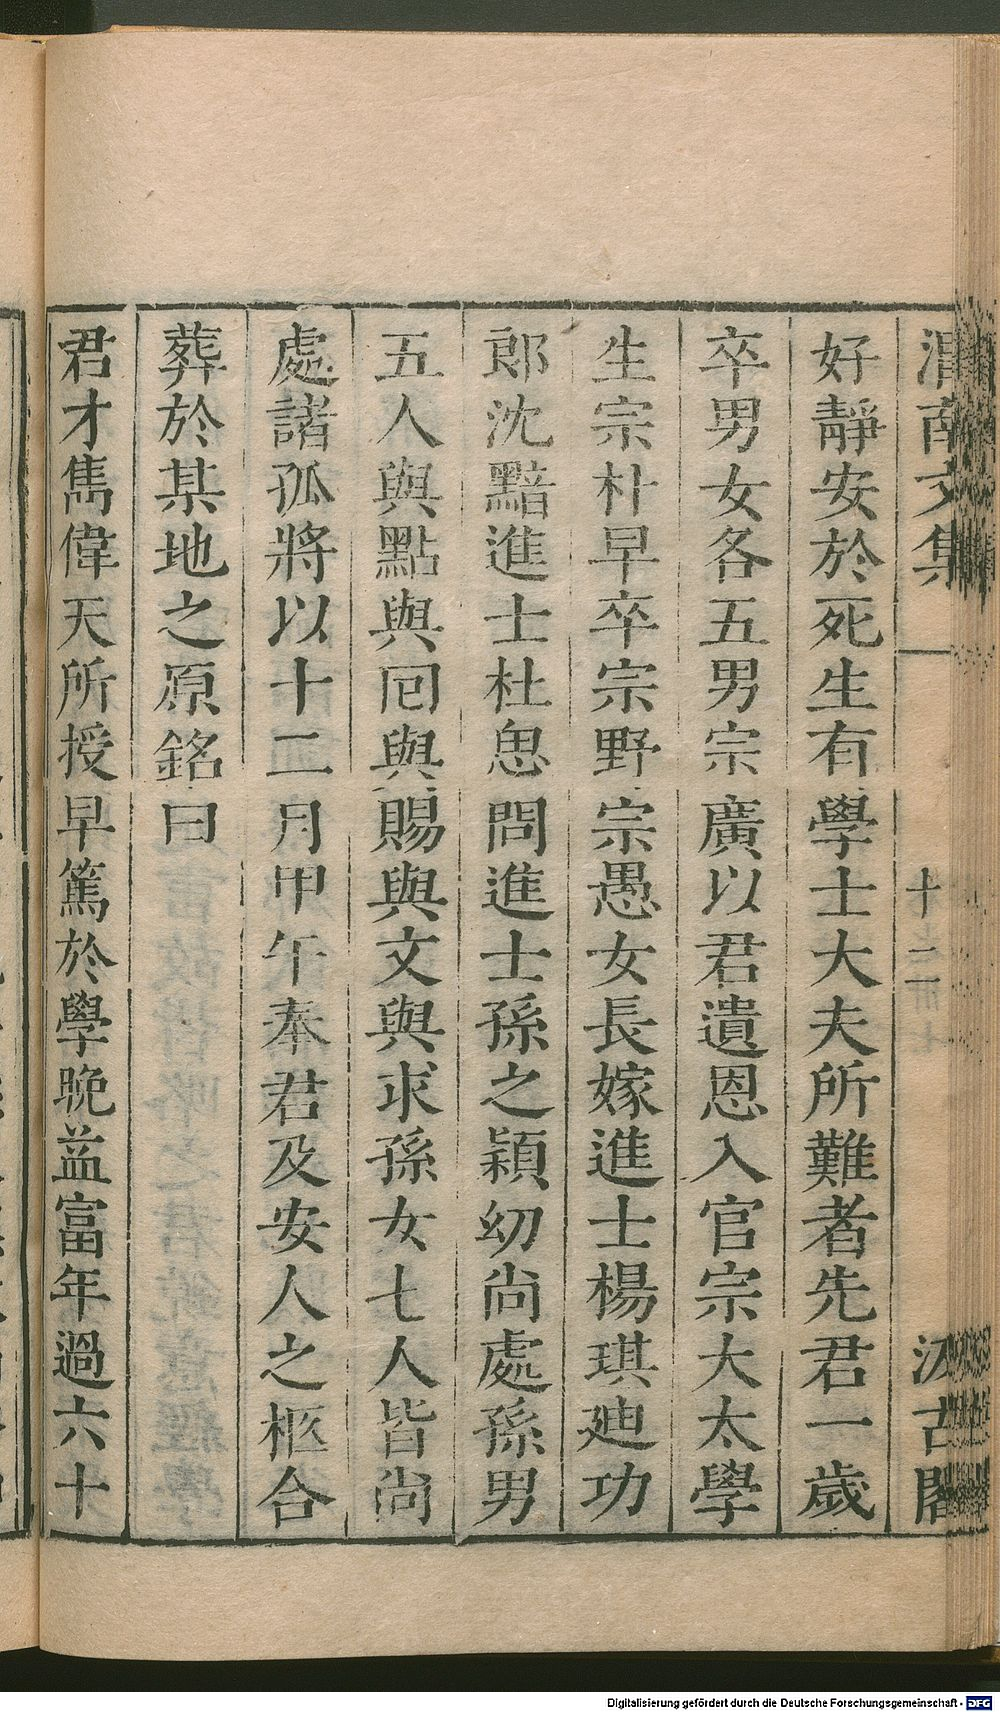 渭南文集
十二
汲古閣
好靜安於死生有學士大夫所難者先君一歲
卒男女各五男宗廣以君遺恩入官宗大太學
生宗朴早卒宗野宗愚女長嫁進士楊琪廸功
郎沈黯進士杜思問進士孫之穎幼尚處孫男
五人與點與囘與賜與文與求孫女七人皆尚
處諸孤將以十二月甲午奉君及安人之柩合
葬於某地之原銘曰
君才雋偉天所授早篤於學晚益富年過六十
Digitalisierung gefördert durch die Deutsche Forschungsgemeinschaft - DFG